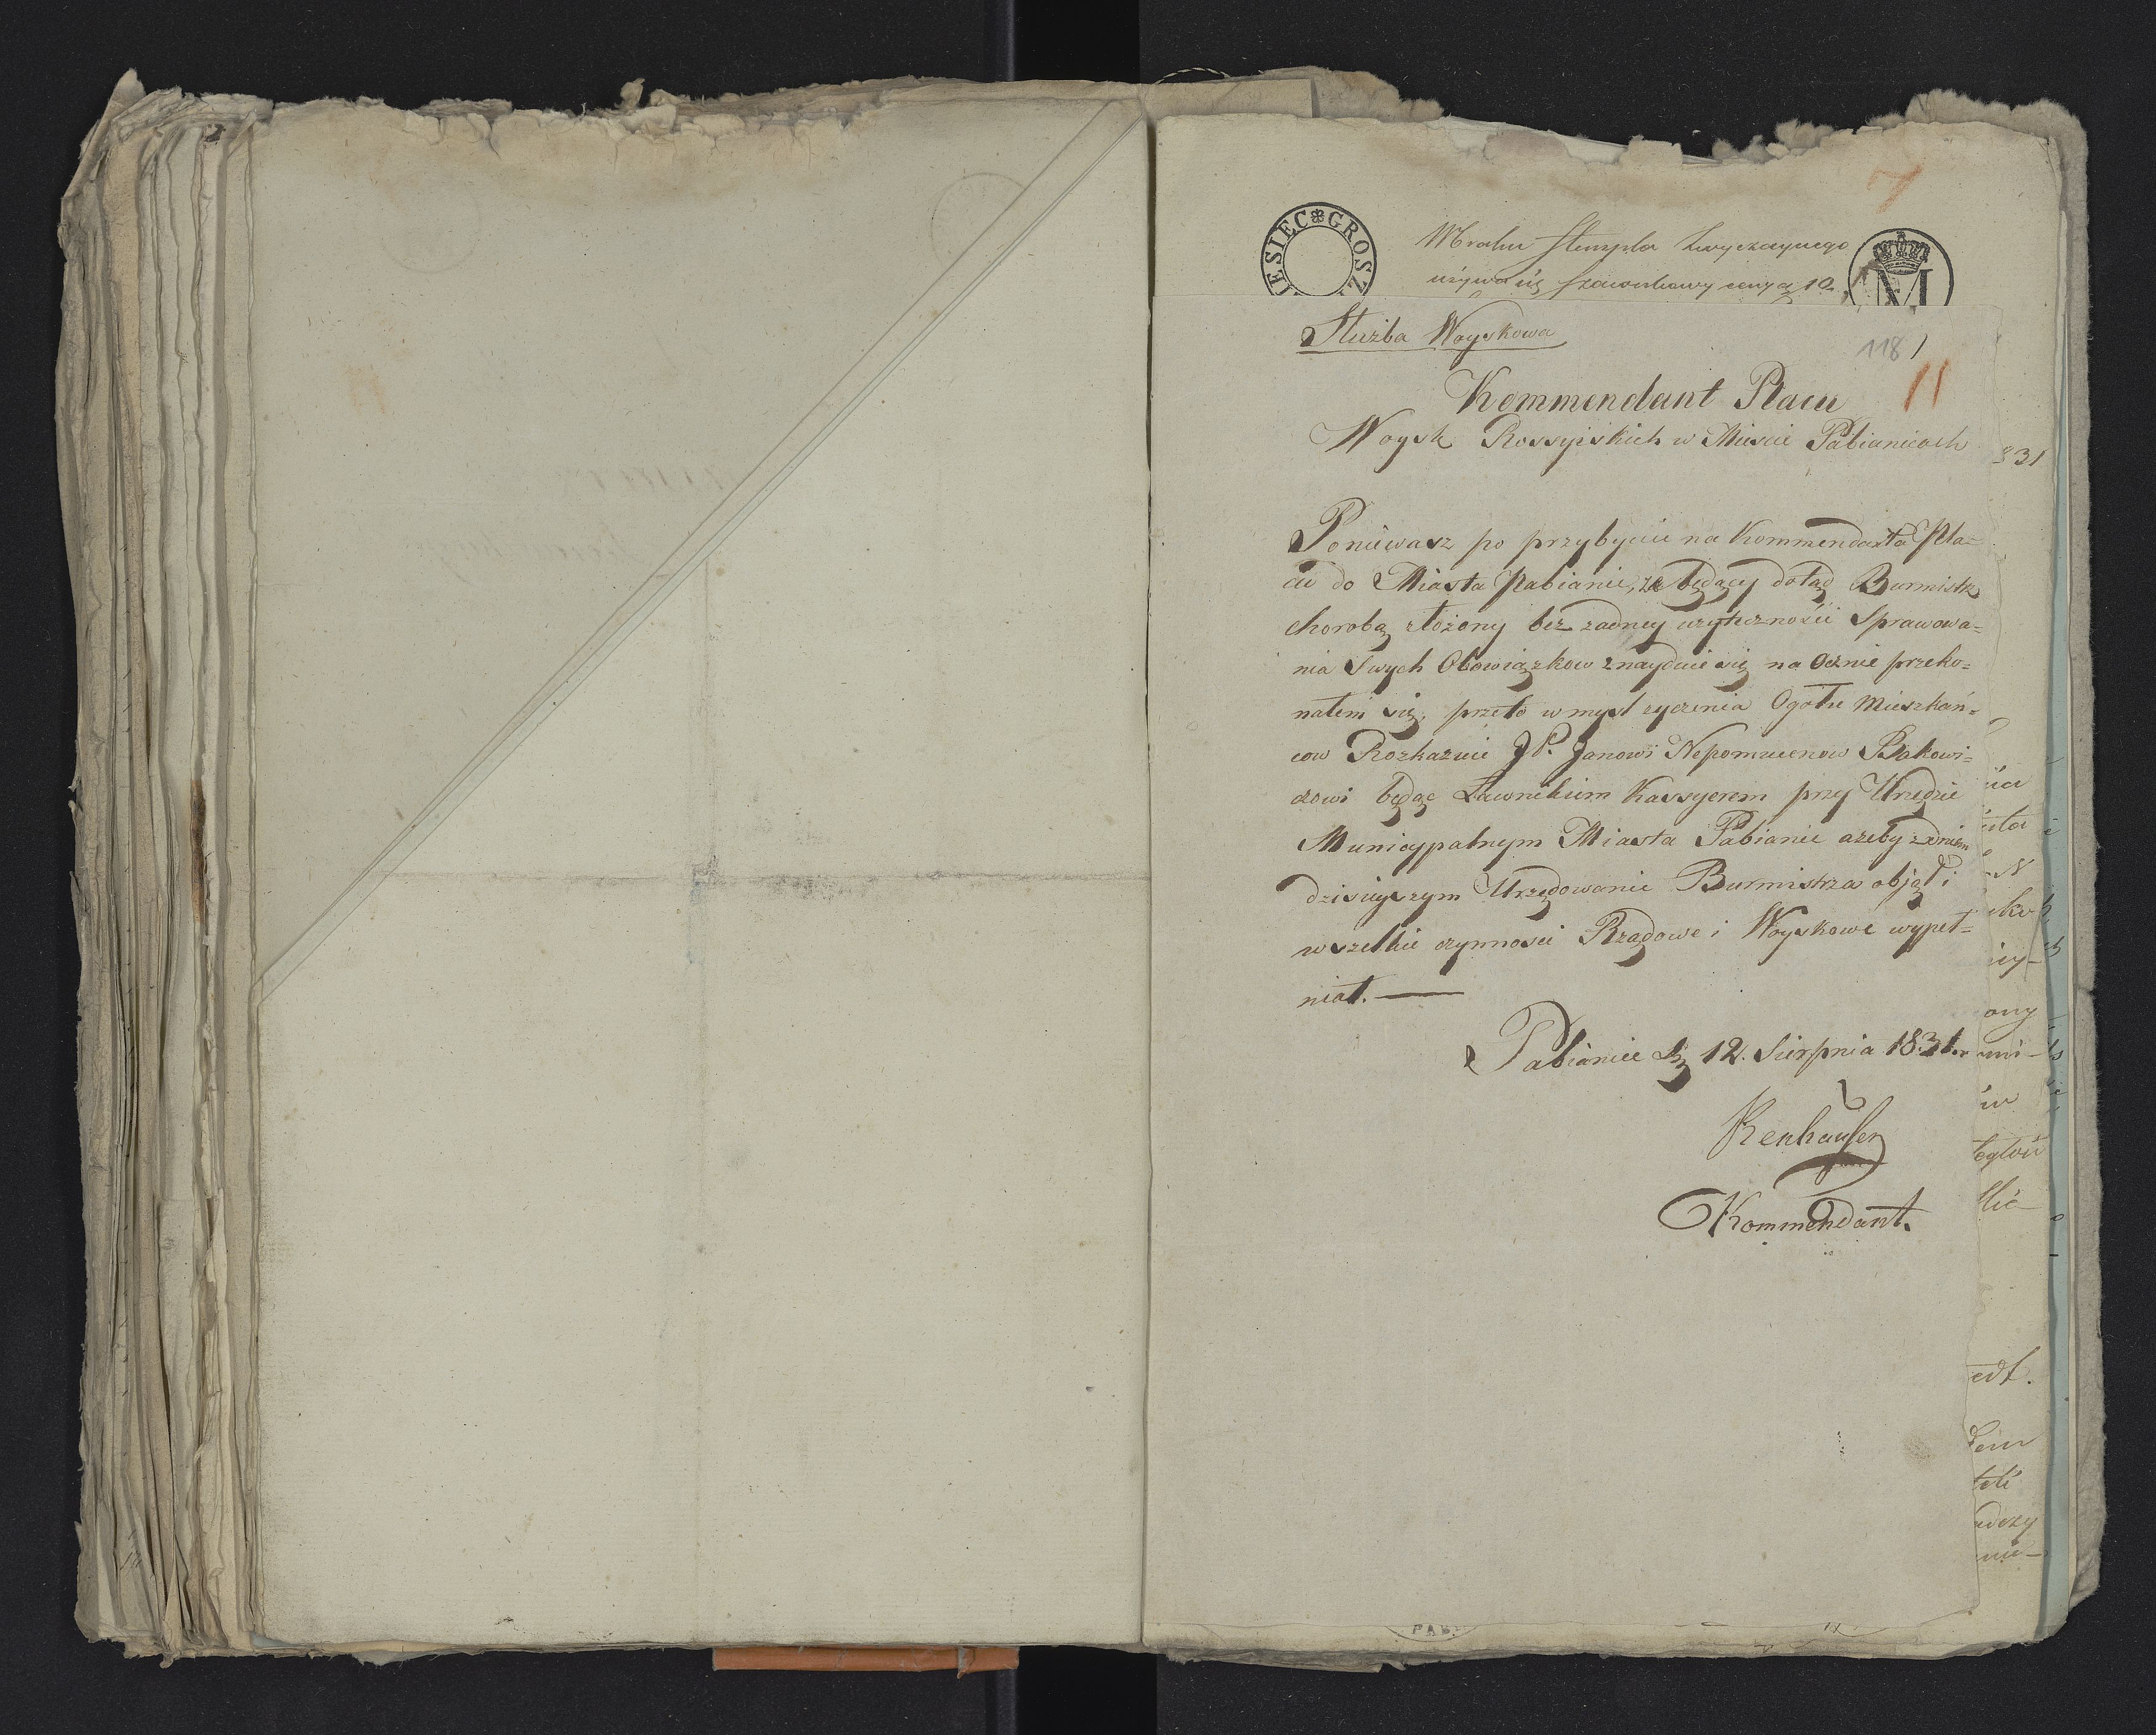 7
IESIEC GROSZ
W braku Stempla zwyczaynego
używa się szacunkowy ceny gr 10
M
Służba Woyskowa
118 1
11
Kommendant Placu
Woysk Rossyiskich w Mieście Pabianicach
831
Poniewasz po przybyciu na Kommendanta Pla=
cu do Miasta Pabianic, że będący dotąd Burmistrz
chorobą złożony bez zadney użyteczności Sprawowa=
nia Swych Obowiązkow znayduie się na Ocznie przeko=
nałem się, przeto w mysl życzenia Ogołu Mieszkań=
cow Rozkazuie JP. Janowi Nepomucenow Bakowi=
czowi będąc Ławnikiem Kassyerem przy Urzędzie
Municypalnym Miasta Pabianic azeby z dniem
dzisieyszym Urzędowanie Burmistrza objął i
wszelkie czynności Rządowe i Woyskowe wypeł=
niał. —
Pabianice dn 12. Sierpnia 1831. r
Kommendant.
ony
edt.
PAB